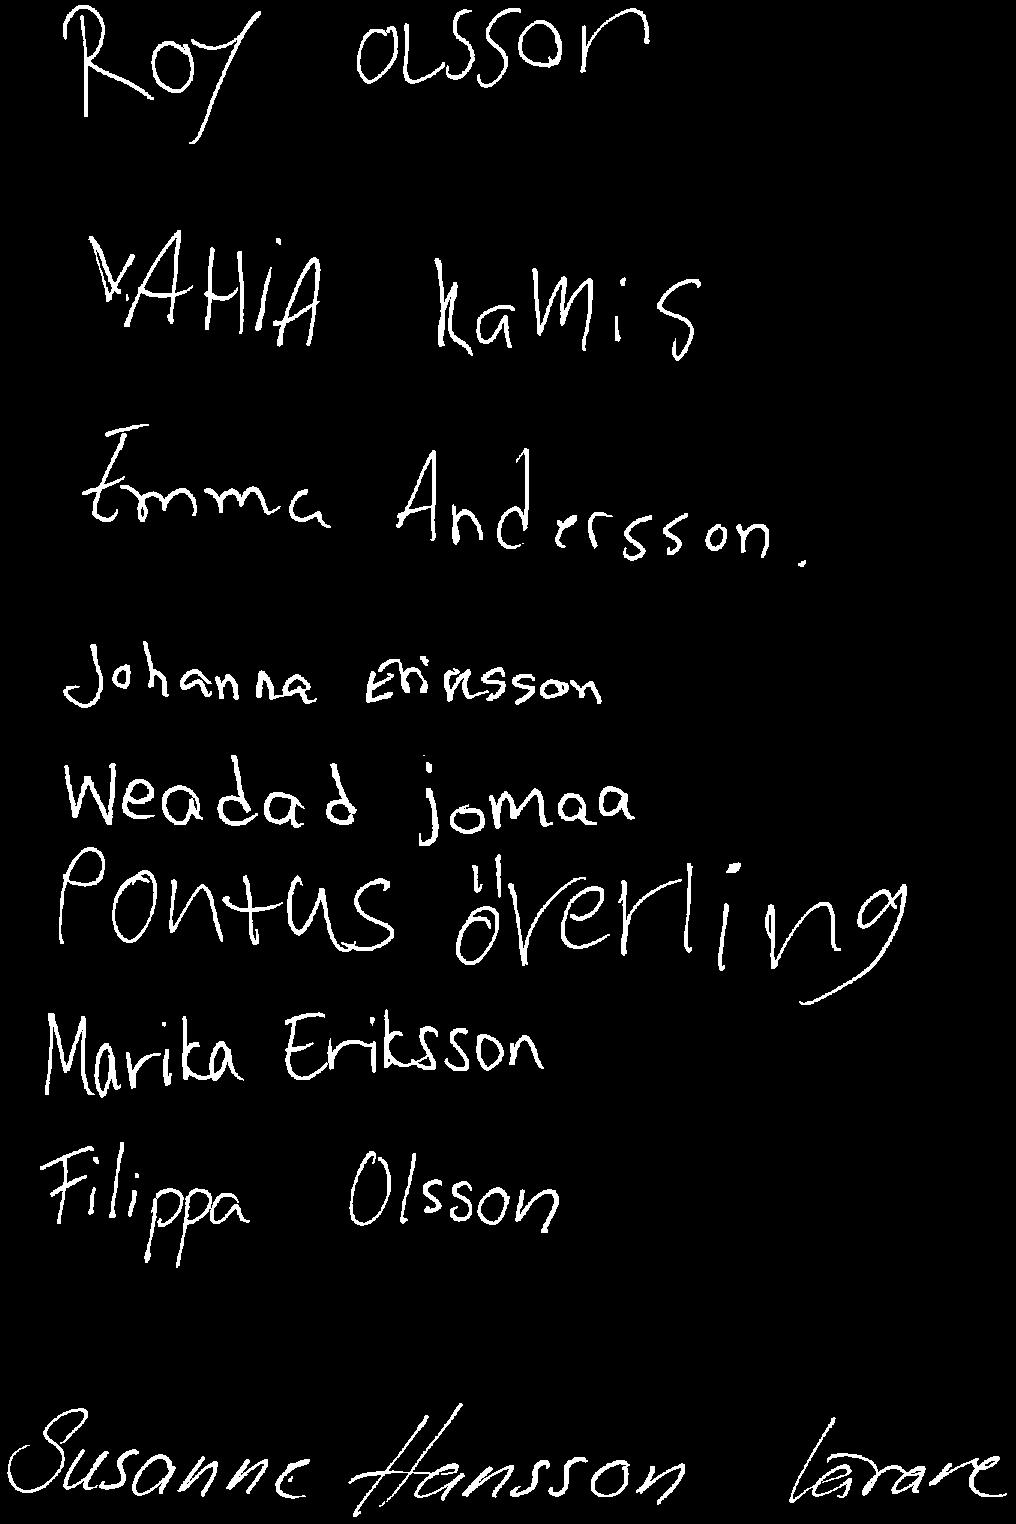 Roy olsson
VAHiA kaMis
Emma Andersson.
Johanna Eriksson
Weadad jomaa
Pontus överling
Marika Eriksson
Filippa Olsson
Susanne Hansson lärare